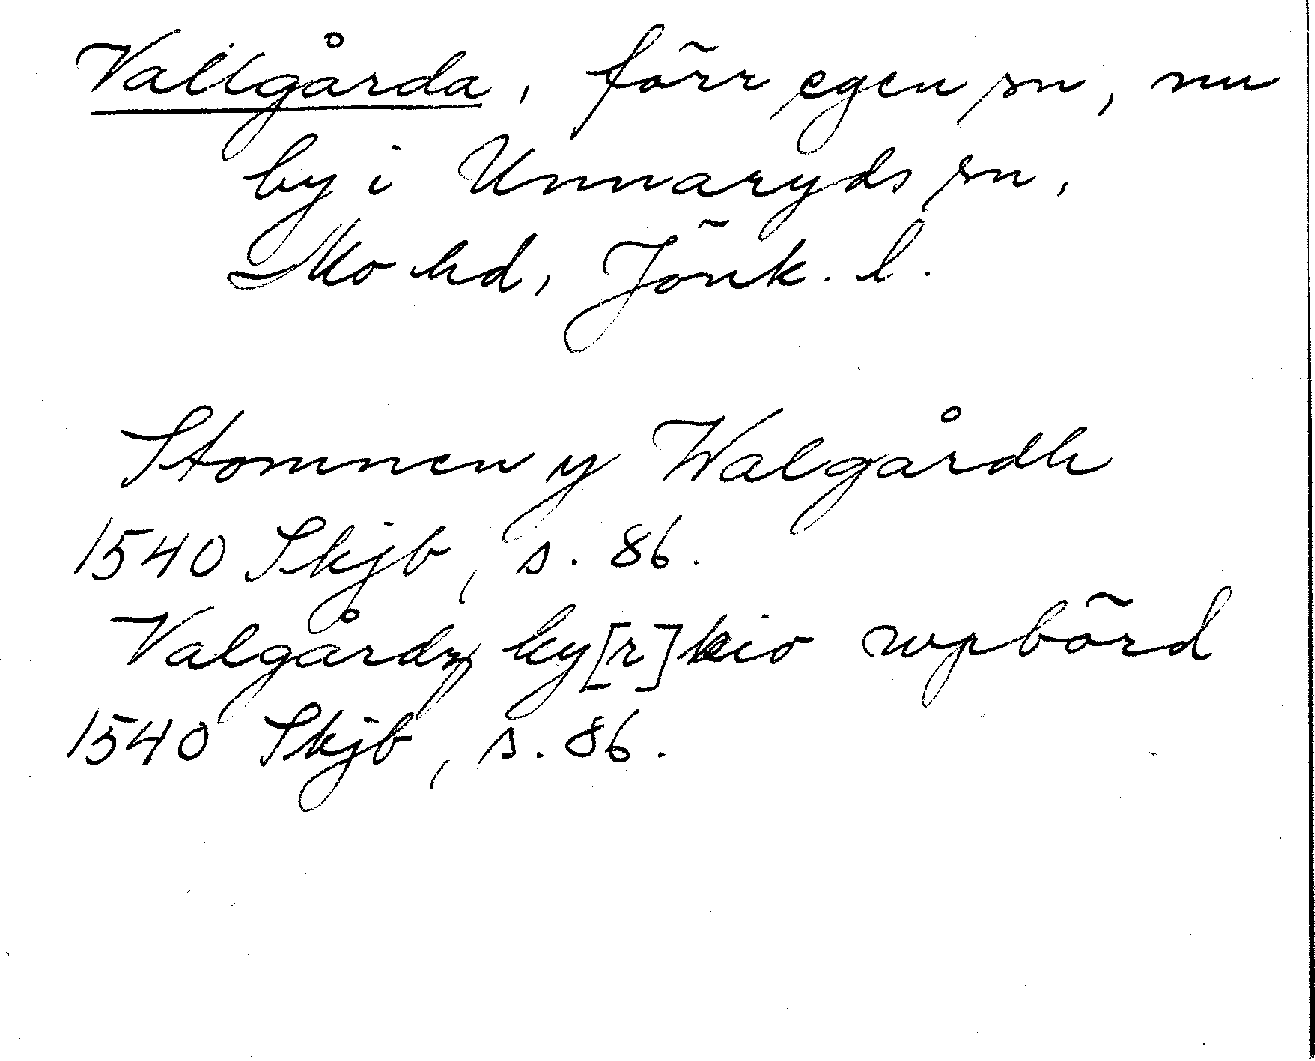 Vallgårda, förr egen sn, nu
by i Unnaryds sn,
Mo hd, Jönk. l.
Stommen y Walgårdh
1540 Skjb, s. 86.
Valgårdz ky[r]kio wpbörd
1540 Skjb, s. 86.